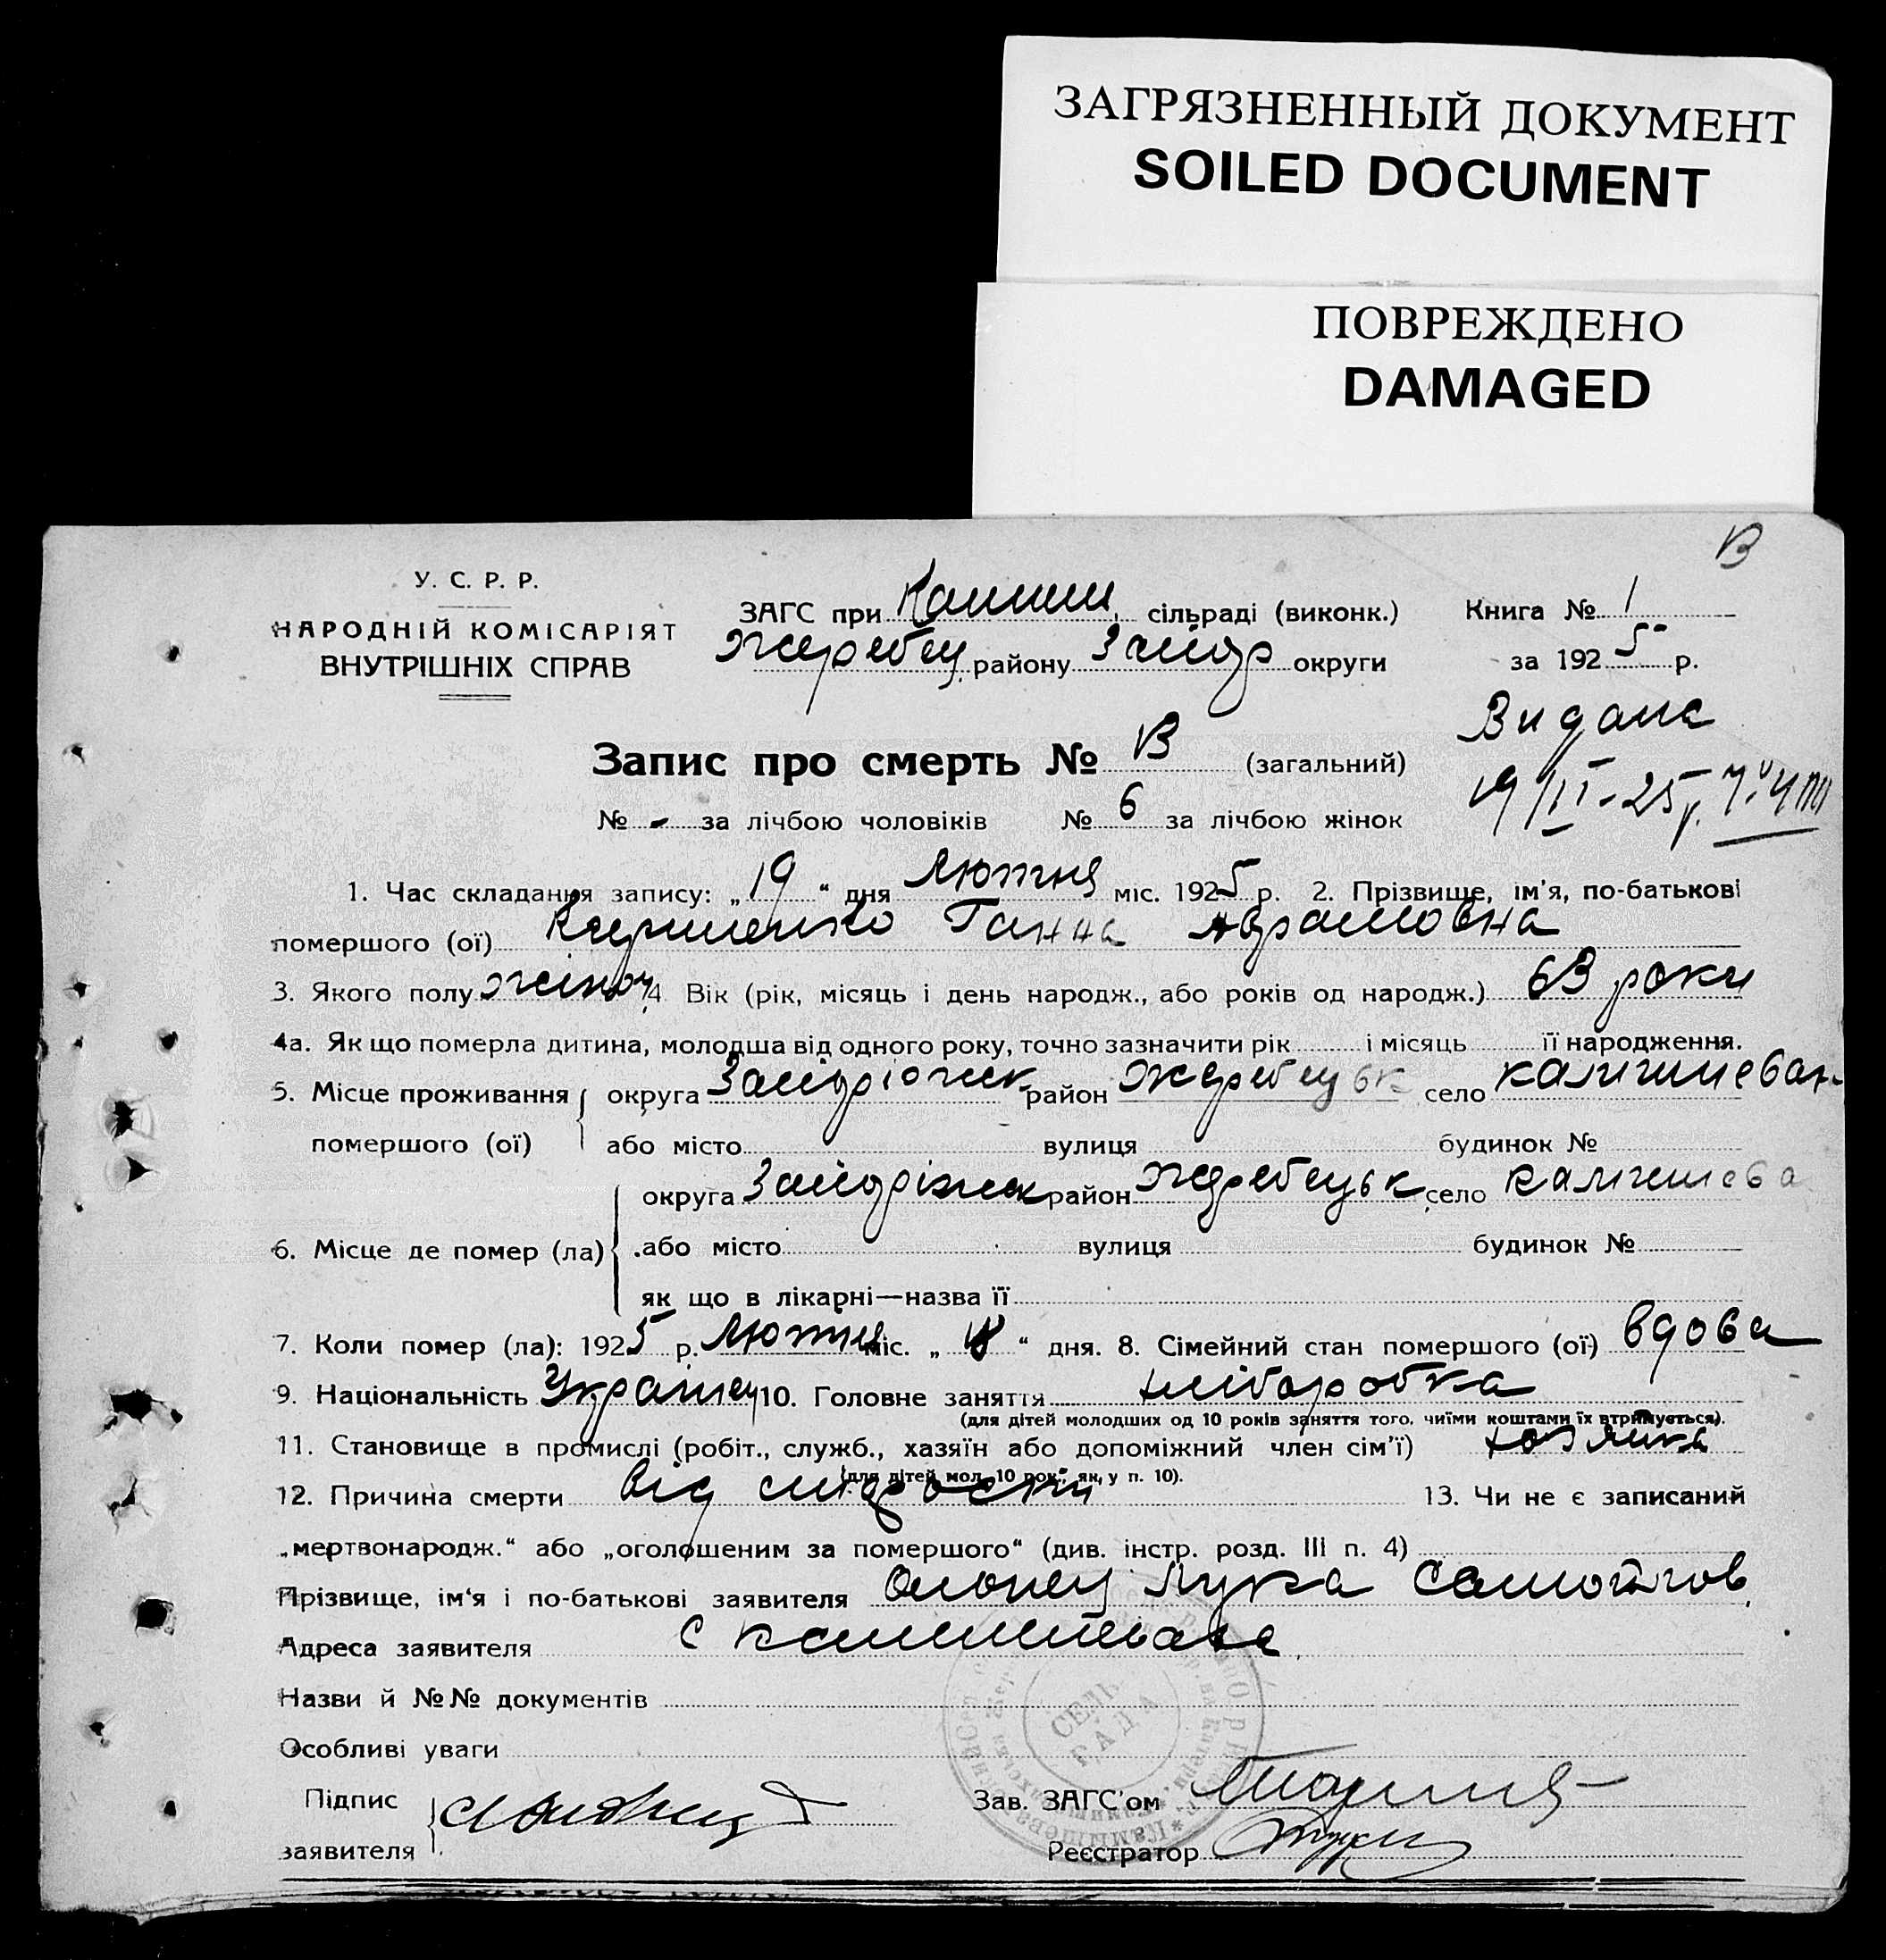 ЗАГРЯЗНЕННЫЙ ДОКУМЕНТ
SOILED DOCUMENT
ПОВРЕЖДЕНО
DAMAGED
В
У. С. Р. Р.
НАРОДНІЙ КОМІСАРІЯТ
ВНУТРІШНІХ СПРАВ
ЗАГС при сільраді (виконк.)
Жеребец. району Запор округи
Книга № 1
за 1925 р.
Запис про смерть № В (загальний)
Видана
№ - за лічбою чоловіків № 6 за лічбою жінок
19/II-25р.
1. Час складання запису: „19“ дня Лютня міс. 1925 р. 2. Прізвище, ім'я, по-батькові
помершого (ої) Ганна Аврамовна
3. Якого полу жіноч 4 Вік (рік, місяць і день народж., або років од народж.) 63 роки
4а. Як що померла дитина, молодша від одного року, точно зазначити рік і місяць її народження.
5. Місце проживання округа Запоріжж район Жеребецьк село
помершого (ої) або місто вулиця будинок №
округа Запоріжж район Жеребецьк село Камишева
6. Місце де помер (ла) або місто вулиця будинок №
як що в лікарні—назва її
7. Коли помер (ла): 1925 р. Лютня міс. „ “ дня. 8. Сімейний стан помершого (ої) вдова
9. Національність Украінец 10. Головне заняття хліборобка
(для дітей молодших од 10 років заняття того, чиїми коштами їх втримується).
11. Становище в промислі (робіт., служб., хазяїн або допоміжний член сім'ї) хозяйка
(для дітей мол. 10 рок., як у п. 10).
12. Причина смерти від старости 13. Чи не є записаний
„мертвонародж.“ або „оголошеним за помершого“ (див. інстр. розд. III п. 4)
Прізвище, ім'я і по-батькові заявителя Лука Самойлов
Адреса заявителя с
Назви й №№ документів
Особливі уваги
СЕЛЬ
РАДА
Підпис
заявителя
Зав. ЗАГС'ом
Реєстратор